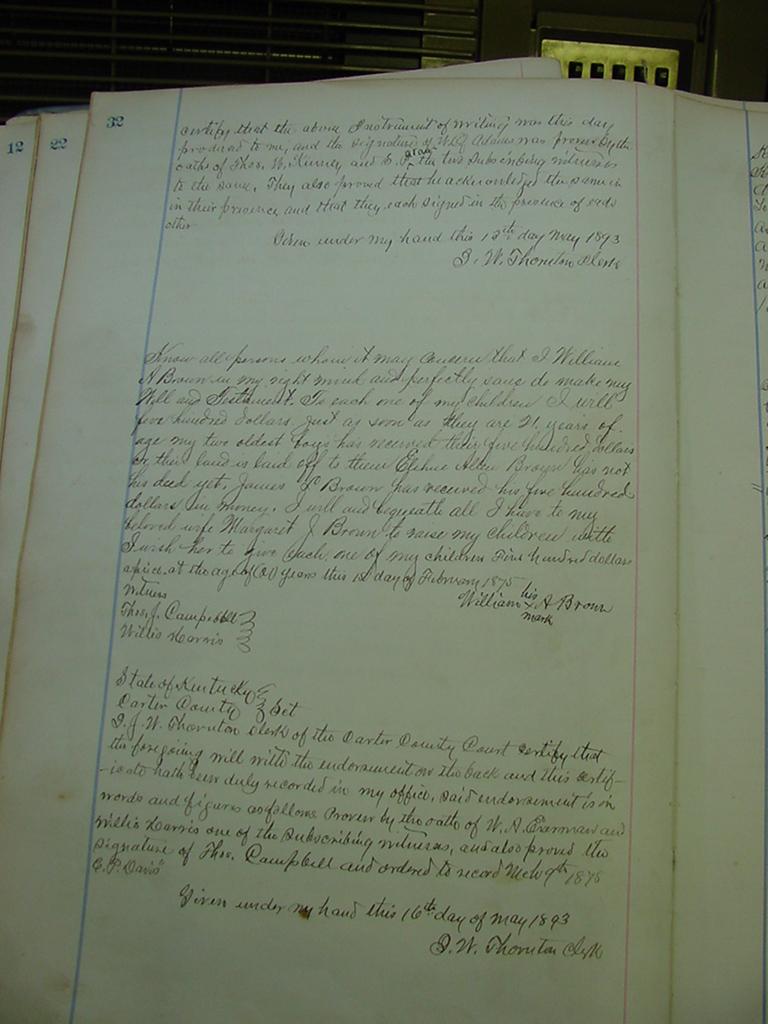 12
22
32
certify that the above Instrument of writing was this day
produced to me, and the signature of Adams was proven by the
oaths of Thos. W. Kinney and E. P. Gray the two subscribing witnesses
to the same, They also proved that he acknowledged the same in
in their presence and that they each signed in the presence of each
other
Given under my hand this 13th day May 1893
J. W. Thornton Clerk
Know all persons whom it may concern that I William
A Brown in my right mind and perfectly sane do make my
Will and Testament. To each one of my children I will
five hundred dollars just as soon as they are 21 years of
age my two oldest boys has received their five hundred dollars
or their land is laid off to them Elehue Allen Brown has not
his deed yet. James Brown has received his five hundred
dollars in money. I will and bequeath all I have to my
beloved wife Margaret J Brown to raise my children with
I wish her to give each one of my children Five hundred dollars
apice at the age of (21) years this 1st day of February 1875
Witness
William his x mark A Brown
Thos. J. Campbell
Willis Harris
State of Kentucky
Carter County Sct
I. J. W. Thornton Clerk of the Carter County Court certify that
the foregoing will with the endorsement on the back and this certif-
-icate hath been duly recorded in my office, said endorsement is in
words and figures as follows Proven by the oath of W. A. and
Willis Harris one of the subscribing witness, and also proved the
signature of Thos. Campbell and ordered to record Mch 9th 1878
E. P. Davis"
Given under my hand this 16th day of May 1893
J. W. Thornton Clerk